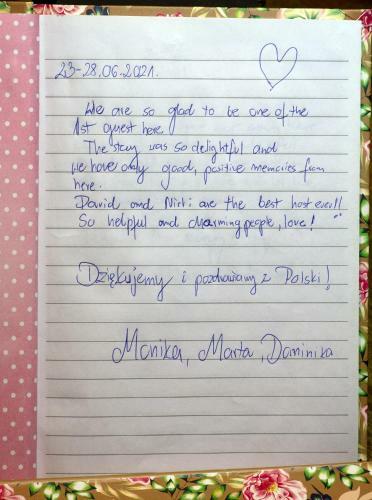 23-28.06.2021.
We are so glad to be one of the
1st guest here.
The stay was so delightful and
we have only good, positive memories from
here.
David and Niki are the best host ever!!
So helpful and charming people, love! ¨
Dziękujemy i pozdrawiamy z Polski!
Monika, Marta, Dominika